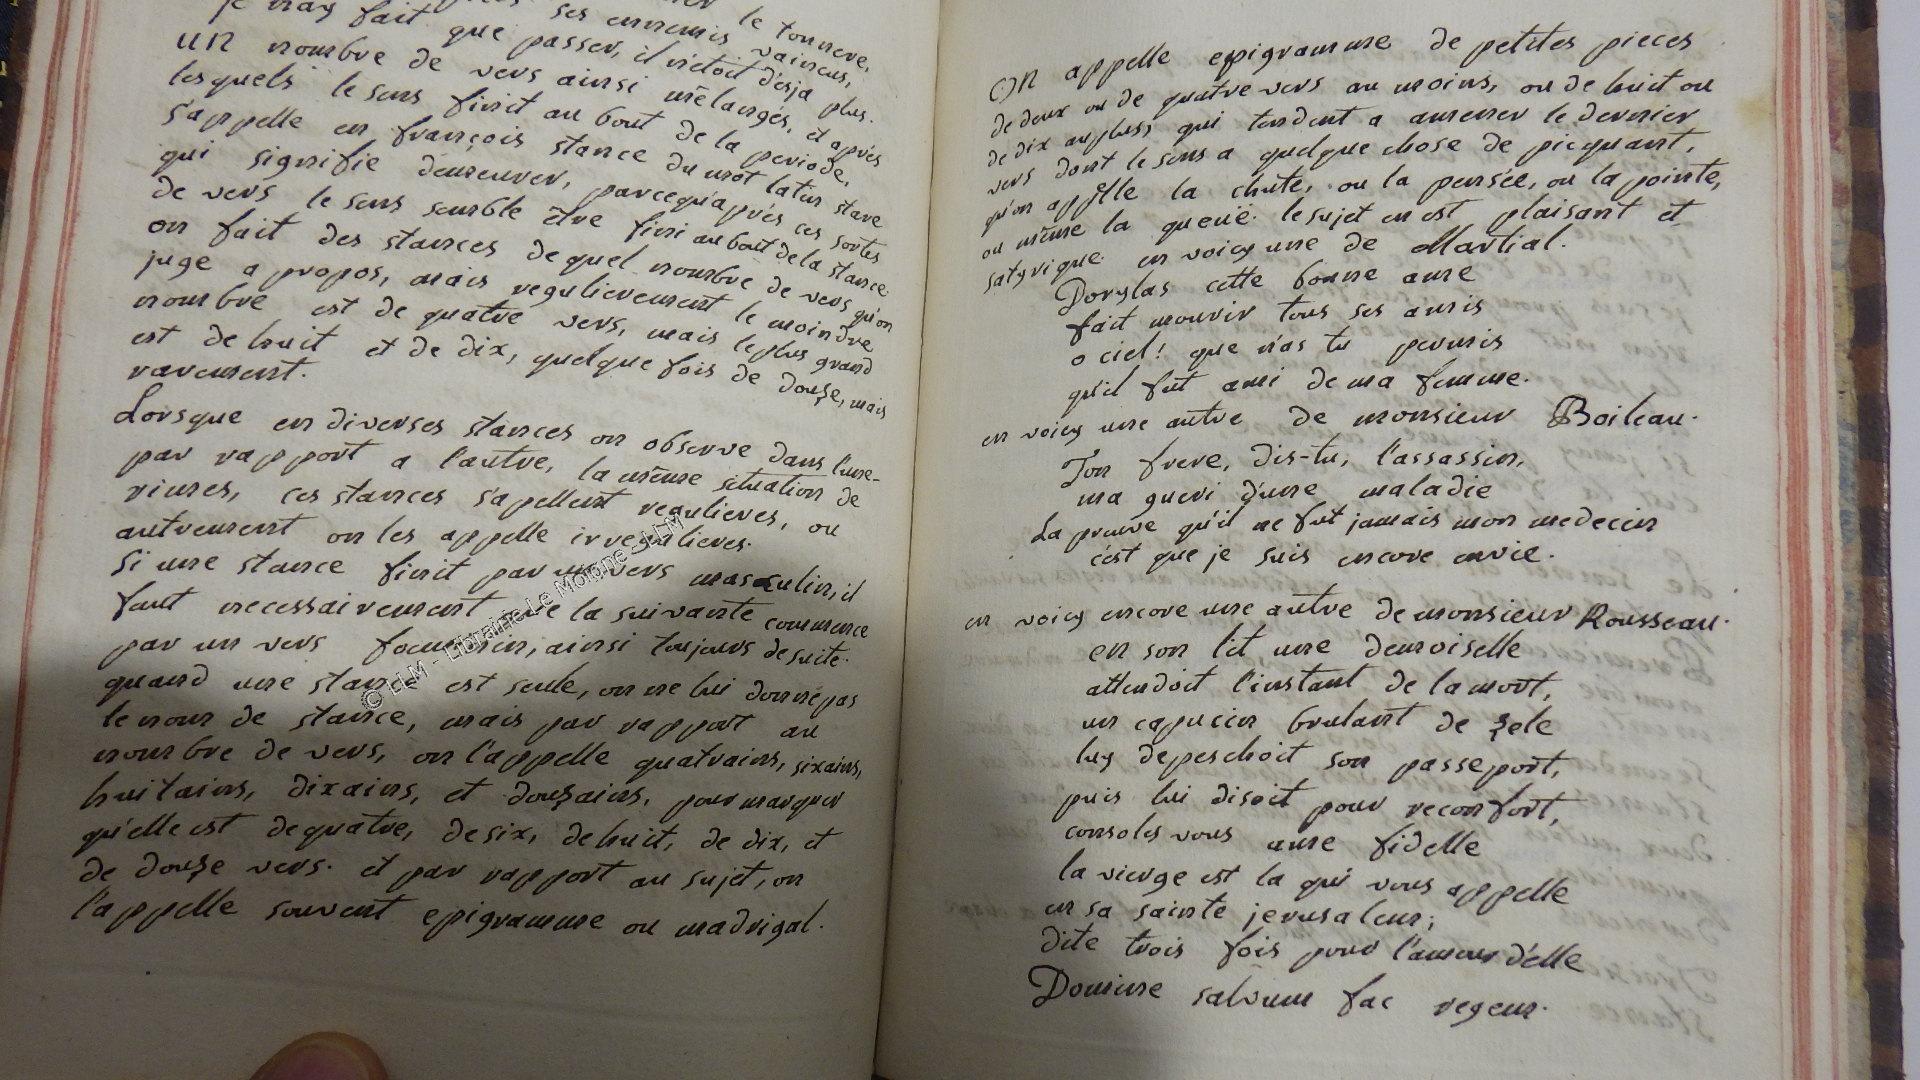 le tonnerre,
ses ennemis vaincus,
je n'ay fait que passer, il n'etoit desja plus.
un nombre de vers ainsi mêlangés, et après
lesquels le sens finit au bout de la periode,
s'appelle en françois stance du mot latin stare
qui signifie demeurer, parcequ'aprés ces sortes
de vers le sens semble être fini au bout de la stance
on fait des stances de quel nombre de vers qu'on
juge a propos, mais regulierement le moindre
nombre est de quatre vers, mais le plus grand
est de huit et de dix, quelque fois de douze, mais
rarement.
Lorsque en diverses stances on observe dans l'une
par rapport a l'autre, la même situation de
rimes, ces stances s'apellent regulieres, ou
autrement on les appelle irregulieres.
Si une stance finit par un vers masculin, il
faut necessairement que la suivante commence
par un vers foeminin, ainsi toujours de suite.
quand une stance est seule, on ne lui donne pas
le nom de stance, mais par rapport au
nombre de vers, on l'appelle quatrains, sixains,
huitains, dixains, et douzains, pour marquer
qu'elle est de quatre, de six, de huit, de dix, et
de douze vers. et par rapport au sujet, on
l'appelle souvent epigramme ou madrigal.
© LLM - Librairie Le Moigne SLLM
On appelle epigramme de petites pieces
de deux ou de quatre vers au moins, ou de huit ou
de dix au plus, qui tendent a amener le dernier
vers dont le sens a quelque chose de picquant,
qu'on appelle la chute, ou la pensée, ou la pointe,
ou même la queuë. le sujet en est plaisant et
satyrique. en voicy une de Martial.
Dorylas cette bonne ame
fait mourir tous ses amis
o ciel! que n'as tu permis
qu'il fut ami de ma femme.
en voicy une autre de monsieur Boileau.
Ton frere, dis-tu, l'assassin,
ma gueri d'une maladie
La preuve qu'il ne fut jamais mon medecin
c'est que je suis encore en vie.
en voicy encore une autre de monsieur Rousseau.
en son lit une demoiselle
attendoit l'instant de la mort,
un capucin brulant de zele
luy depeschoit son passeport,
puis lui disoit pour reconfort,
consolés vous ame fidelle
la vierge est la qui vous appelle
en sa sainte jerusalem;
dite trois fois pour l'amour d'elle
Domine salvum fac regem.